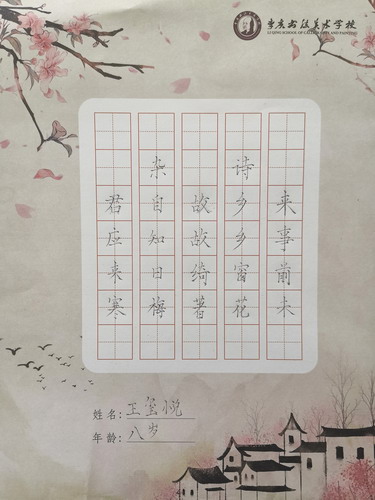 李庆书法美术学校
LI QING SCHOOL OF CALLIGRAPHY AND PAINTING
杂诗
君自故乡来
应知故乡事
来日绮窗前
寒梅著花未
姓名：王玺悦
年龄：八岁